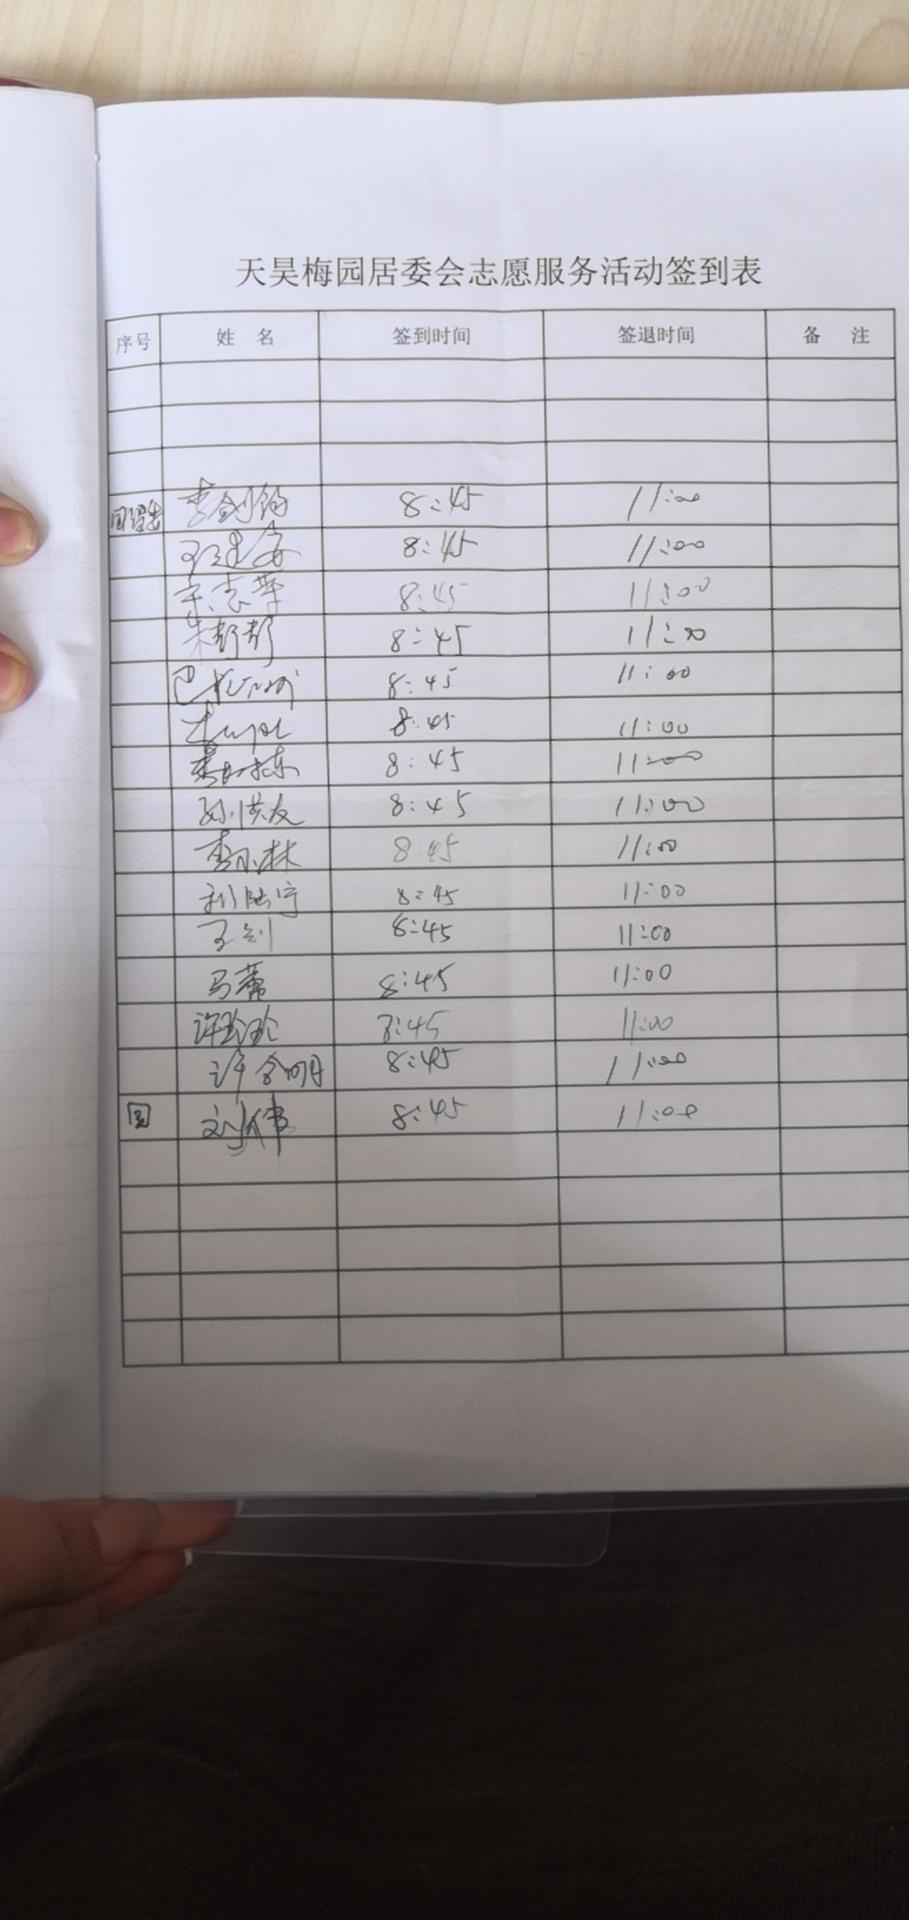 天昊梅园居委会志愿服务活动签到表
序号 姓 名 签到时间 签退时间 备 注
李剑 8:45 11:00
王建安 8:45 11:00
8:45 11:00
朱彭彭 8:45 11:00
巴 8:45 11:00
8:45 11:00
8:45 11:00
孙洪友 8:45 11:00
李小林 8:45 11:00
8:45 11:00
王剑 8:45 11:00
马蒂 8:45 11:00
许玲玲 8:45 11:00
许明 8:45 11:00
刘伟 8:45 11:00